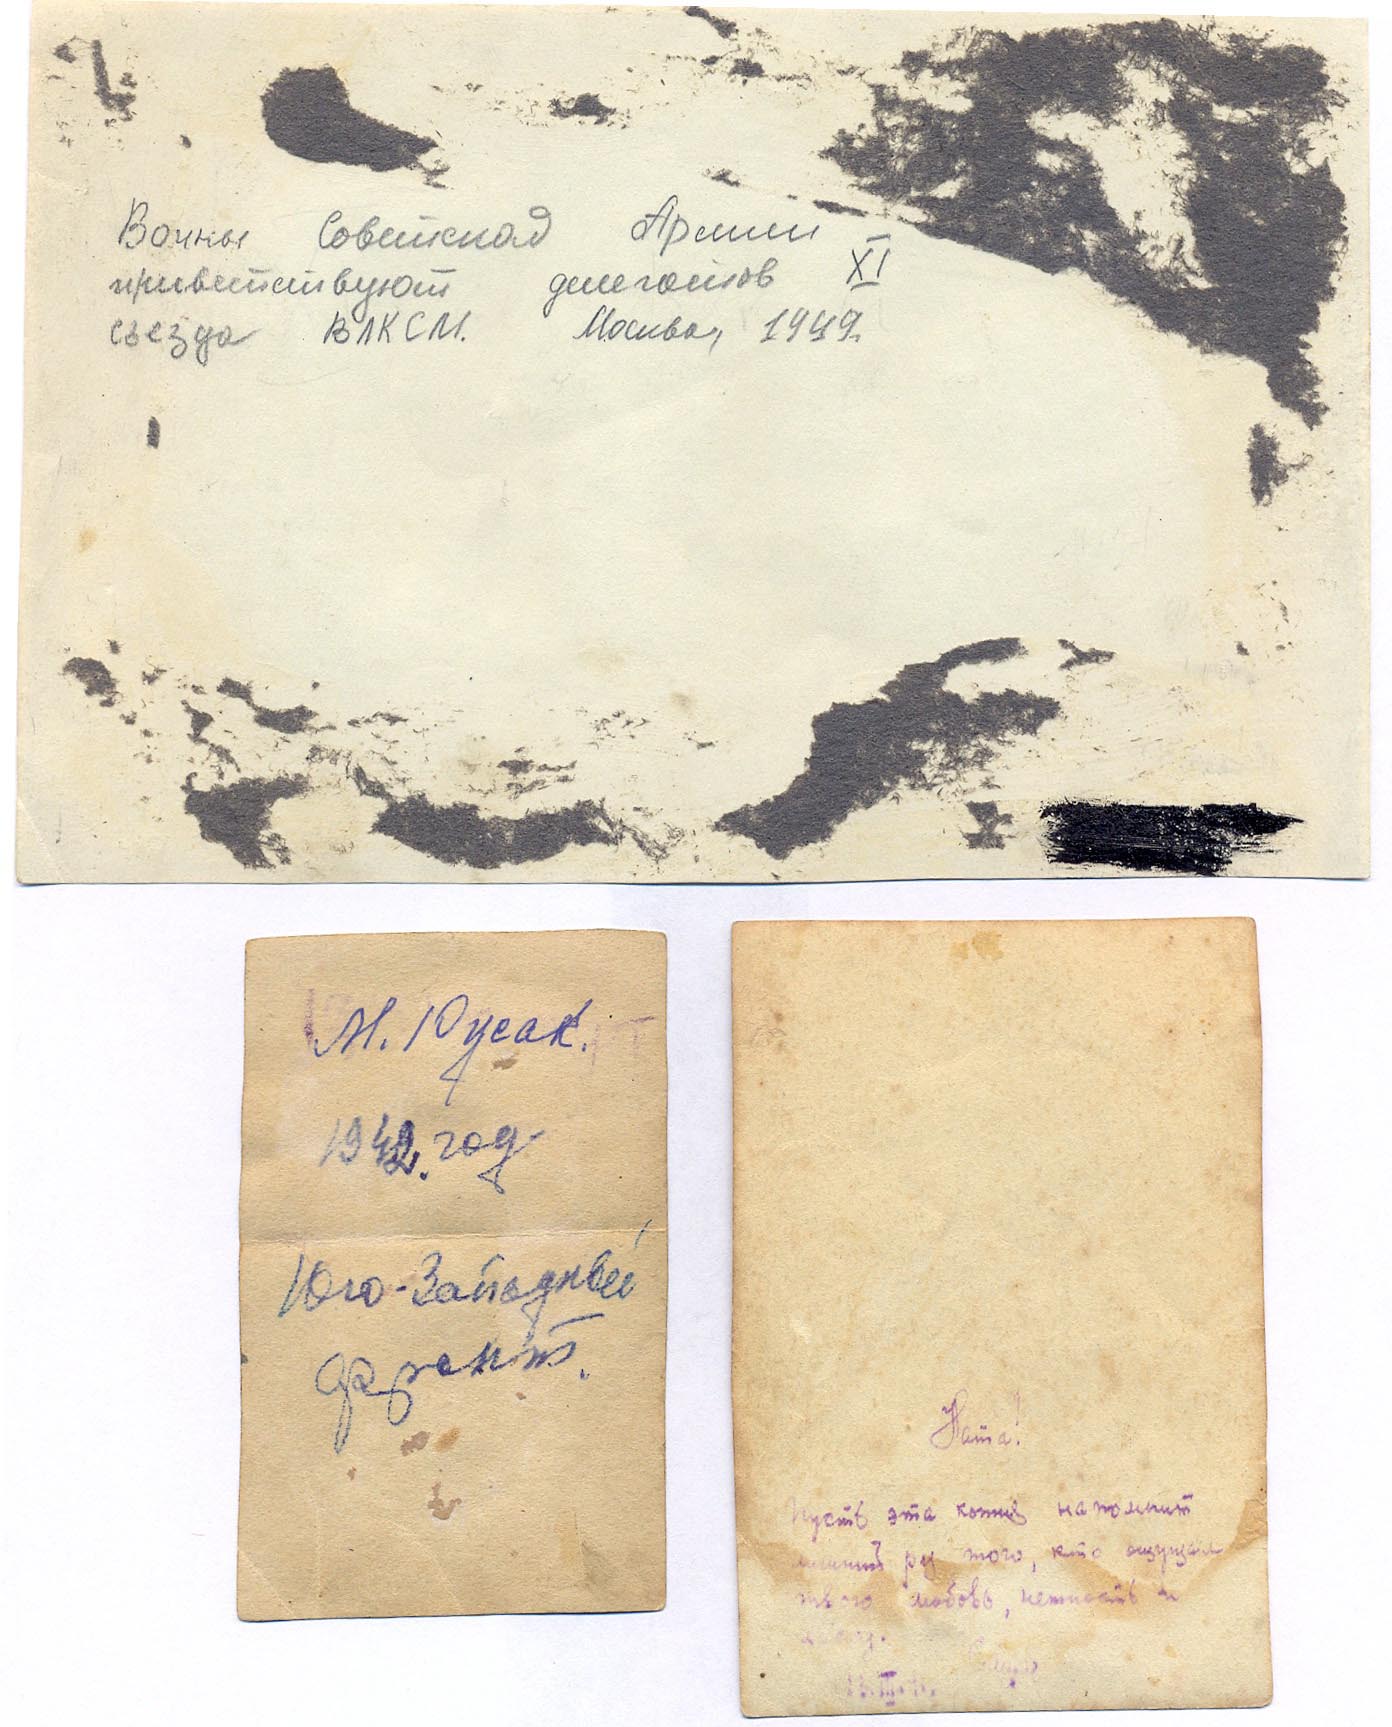 Воины Советской Армии
приветствуют делегатов XI
съезда ВЛКСМ. Москва, 1949.
М. Юсак.
1942. год
Юго-Западный
фронт.
Ната!
Пусть эта копия напомнит
лишний раз того, кто ощущал
твою любовь, нежность и